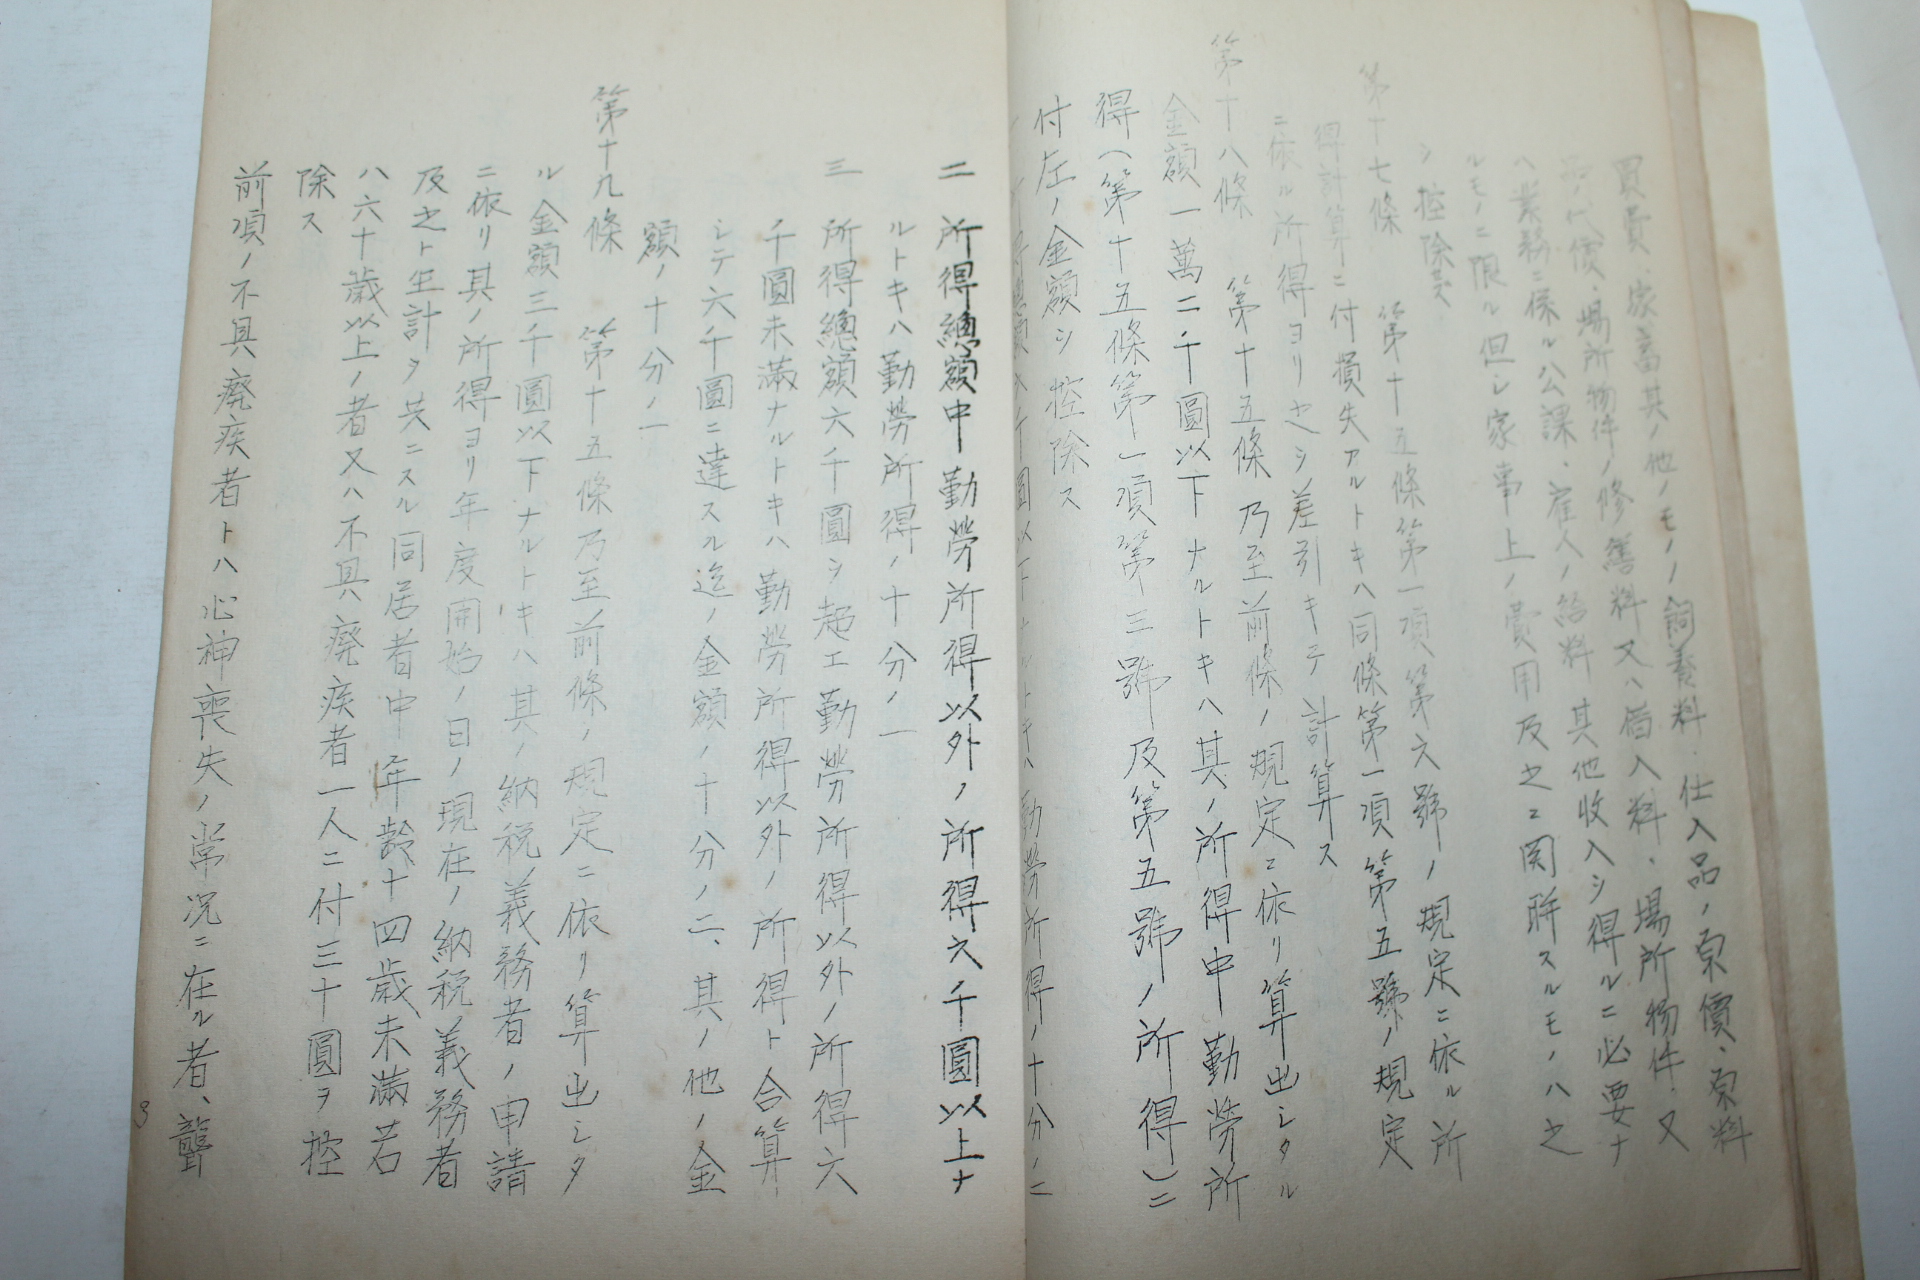 買費、家畜其ノ他ノモノノ飼養料、仕入品ノ原價、原料
品ノ代價、場所物件ノ修繕料又ハ借入料、場所物件、又
ハ業務ニ係ル公課、雇人ノ給料其他收入シ得ルニ必要ナ
ルモノニ限ル但シ家事上ノ費用及之ニ関聯スルモノハ之
シ控除ス
第十七條 第十五條第一項第六號ノ規定ニ依ル所
得計算ニ付損失アルトキハ同條第一項第五號ノ規定
ニ依ル所得ヨリセシ差引キテ計算ス
第十八條 第十五條乃至前條ノ規定ニ依リ算出シタル
金額一萬二千圓以下ナルトキハ其ノ所得中勤勞所
得(第十五條第一項第三號及第五號ノ所得)ニ
付左ノ金額シ控除ス
一 所得總額六千圓以下ナルトキハ勤勞所得ノ十分ノ二
二 所得總額中勤勞所得以外ノ所得六千圓以上ナ
ルトキハ勤勞所得ノ十分ノ一
三 所得總額六千圓シ超エ勤勞所得以外ノ所得六
千圓未滿ナルトキハ勤勞所得以外ノ所得ト合算
シテ六千圓ニ達スル迄ノ金額ノ十分ノ二、其ノ他ノ金
額ノ十分ノ一
第十九條 第十五條乃至前條ノ規定ニ依リ算出シタ
ル金額三千圓以下ナルトキハ其ノ納税義務者ノ申請
ニ依リ其ノ所得ヨリ年度開始ノ日ノ現在ノ納税義務者
及之ト生計ヲ共ニスル同居者中年齡十四歳未滿若
ハ六十歳以上ノ者又ハ不具廃疾者一人ニ付三十圓ヲ控
除ス
前項ノ不具廃疾者トハ心神喪失ノ常況ニ在ル者、聾
3